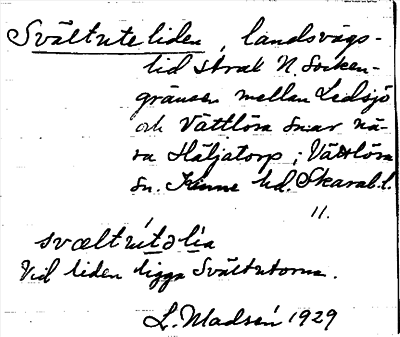 Svältuteliden, landsvägs-
lid strax N. Socken-
gränsen mellan Ledsjö
och Vättlösa snar nä-
ra Häljatorp i Vättlösa
sn. Kinne hd. Skarab. l.
11.
svæltútəlia
Vid liden ligga Svältutorna.
L. Madsén 1929